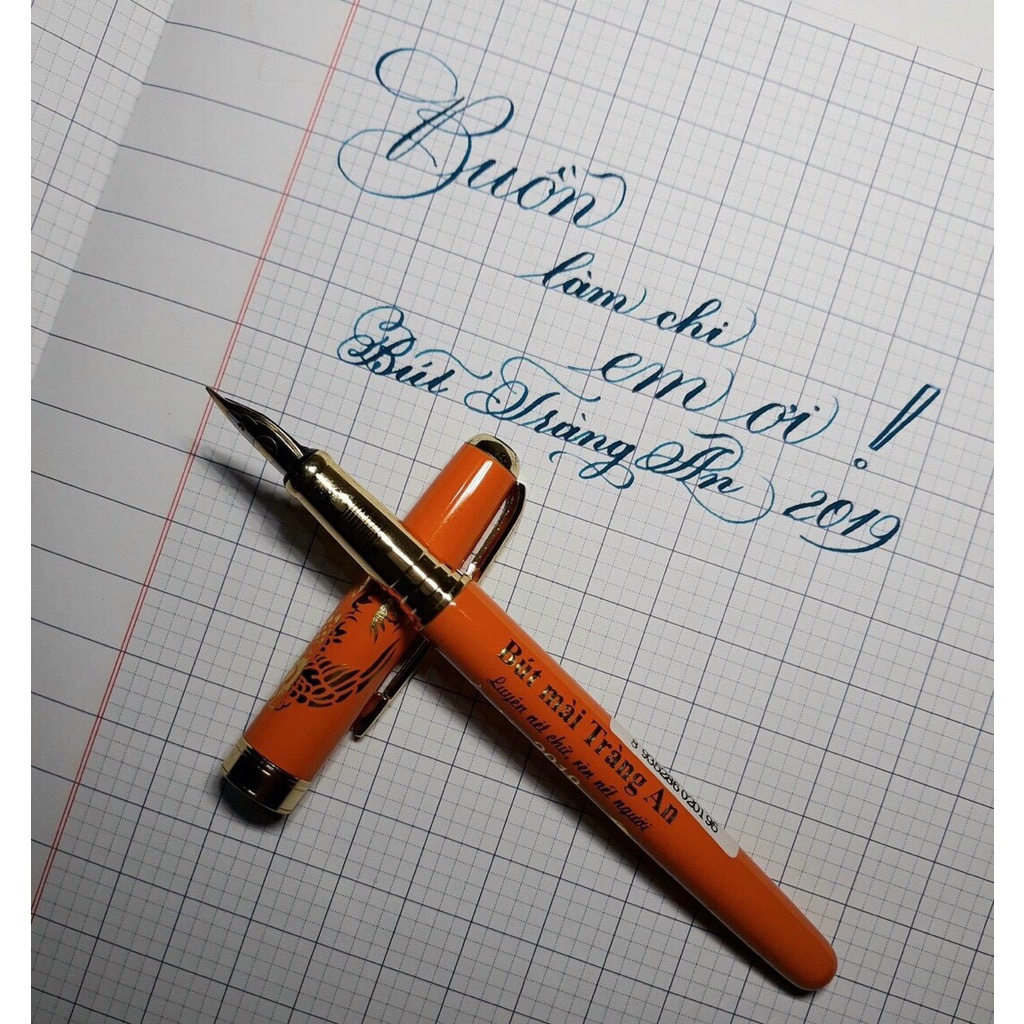 Buồn
làm chi
em ơi !
Bút Tràng An 2019
Bút mài Tràng An
Luyện nét chữ, rèn nét người
8 935286 020196